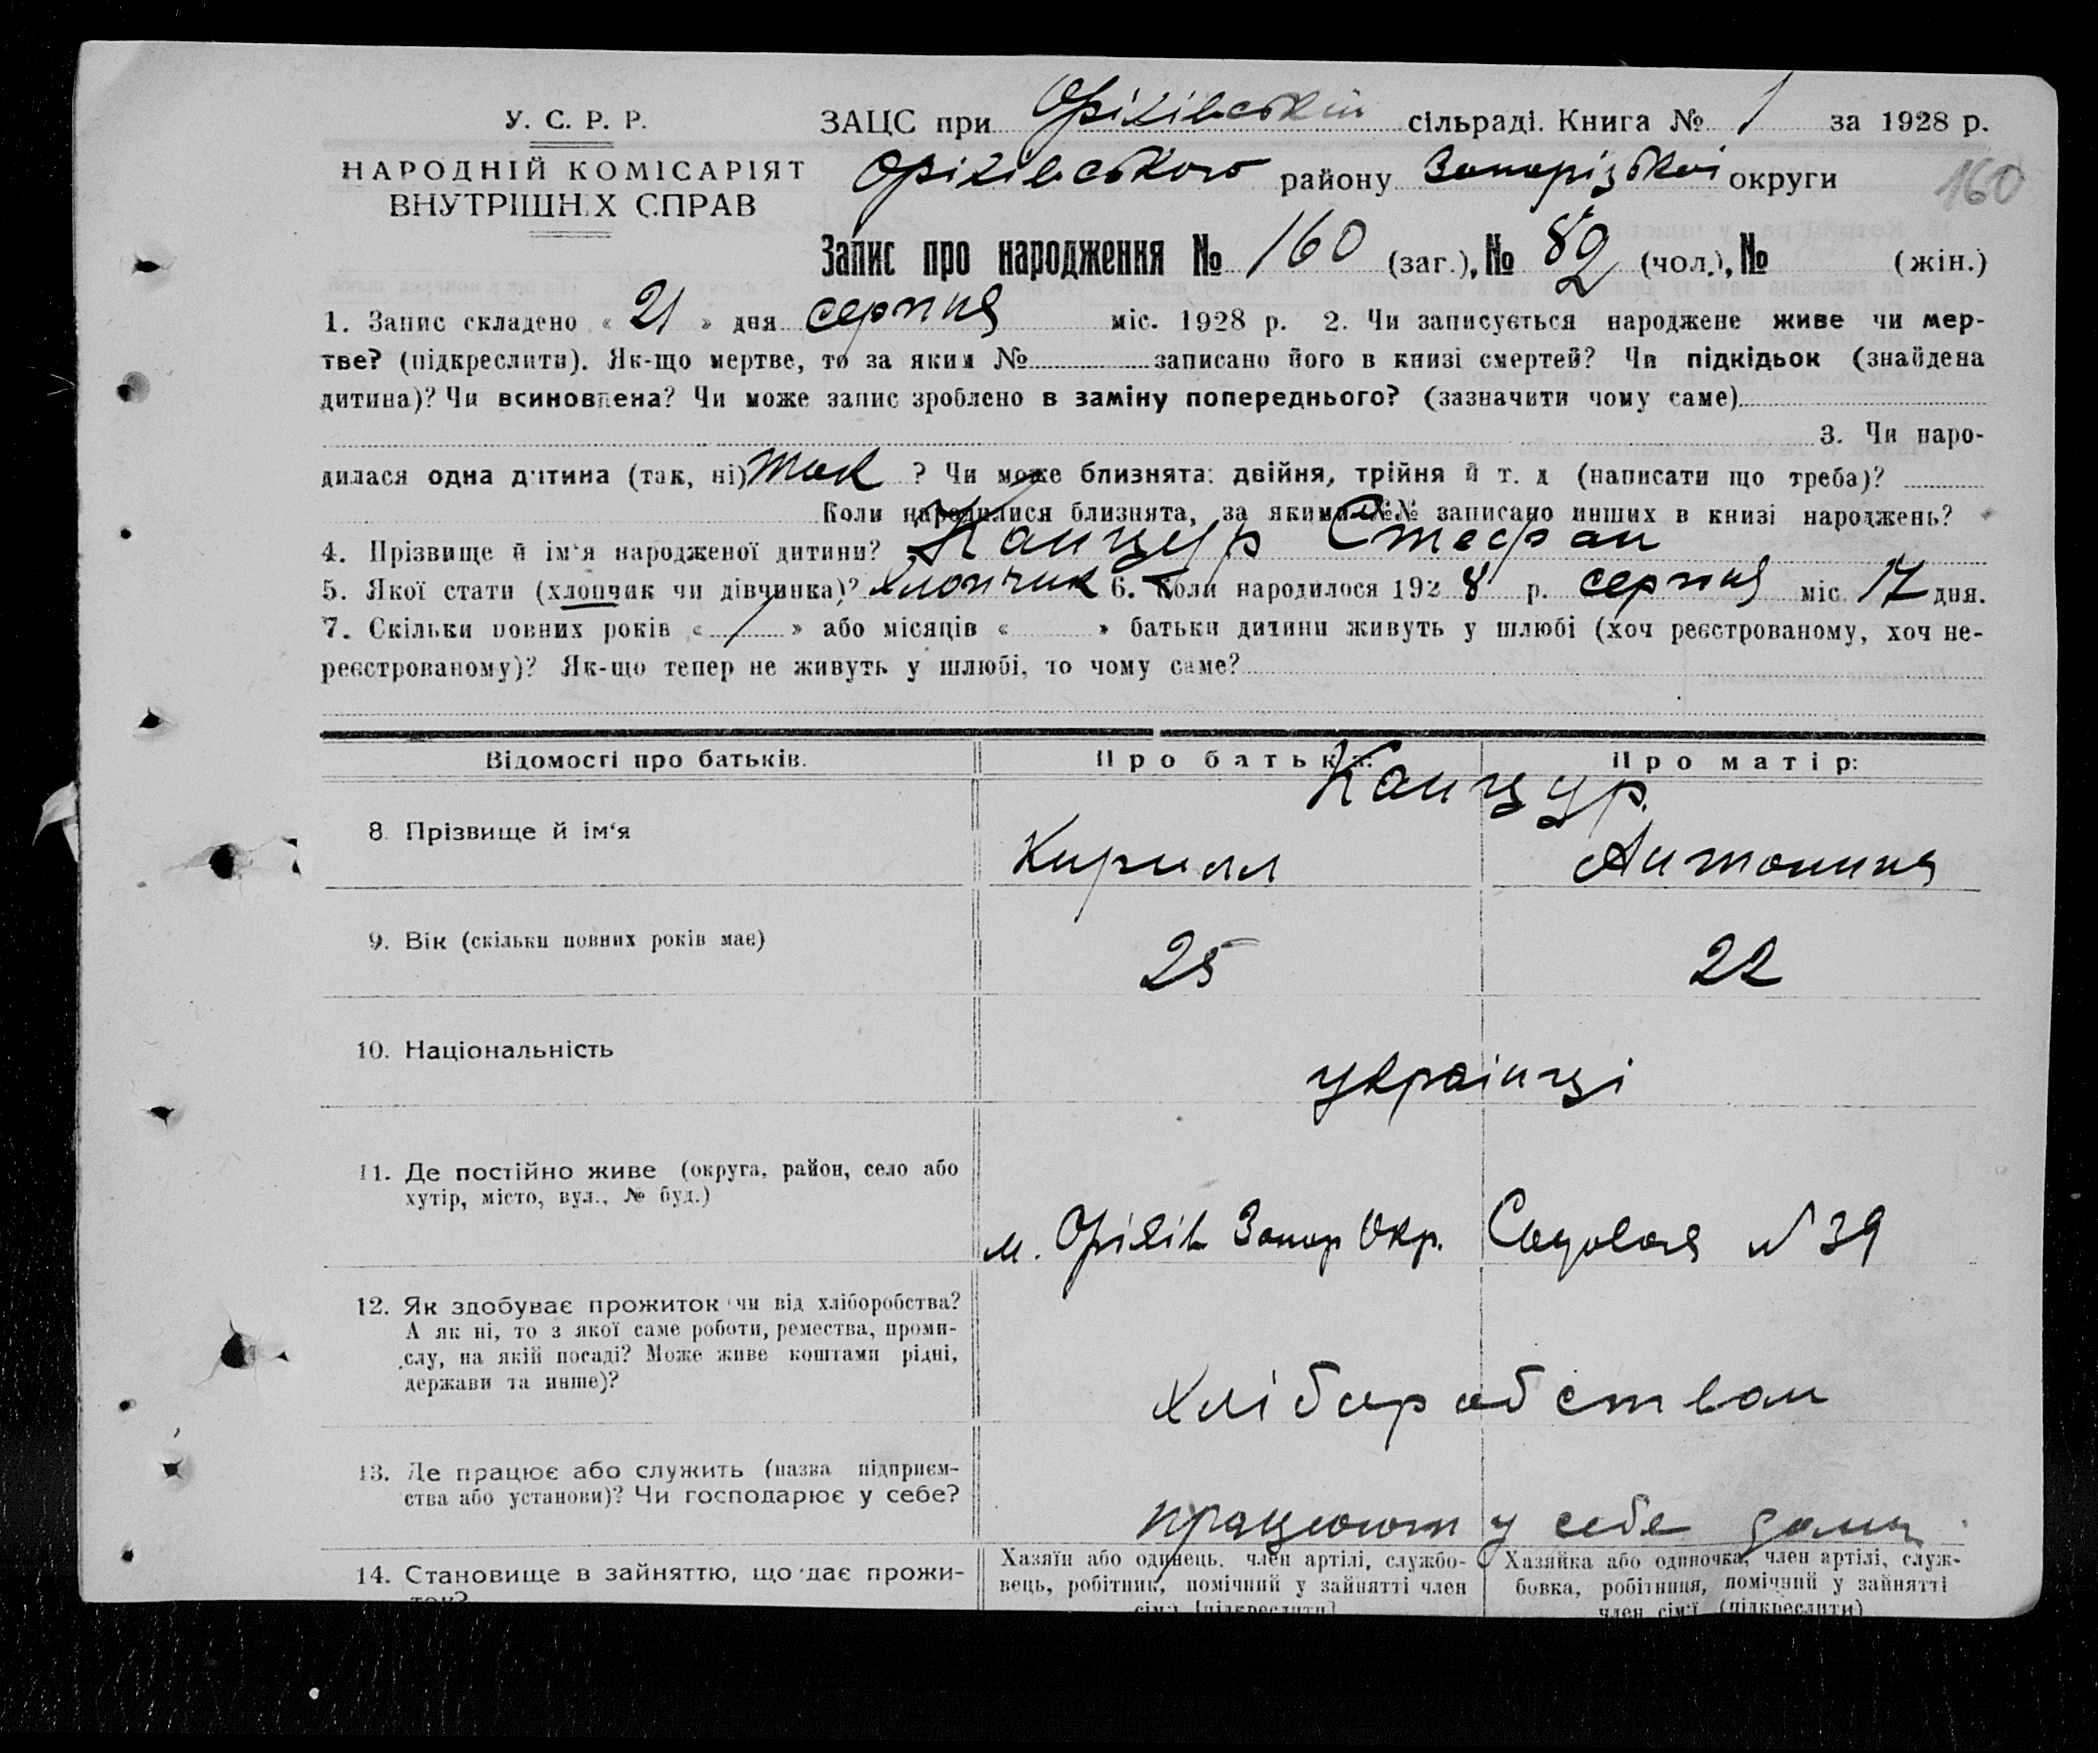 У. С. Р. Р.
НАРОДНІЙ КОМІСАРІЯТ
ВНУТРІШНІХ СПРАВ
ЗАЦС при Оріхівській сільраді. Книга № 1 за 1928 р.
Оріхівського району Запорізької округи
160
Запис про народження № 160 (заг.), № 82 (чол.), № (жін.)
1. Запис складено « 21 » дня серпня міс. 1928 р. 2. Чи записується народжене живе чи мер-
тве? (підкреслити). Як-що мертве, то за яким № записано його в книзі смертей? Чи підкідьок (знайдена
дитина)? Чи всиновлена? Чи може запис зроблено в заміну попереднього? (зазначити чому саме)
3. Чи наро-
дилася одна дитина (так, ні) так ? Чи може близнята: двійня, трійня й т. д (написати що треба)?
Коли народилися близнята, за якими №№ записано инших в книзі народжень?
4. Прізвище й ім'я народженої дитини? Канцур Стефан
5. Якої стати (хлопчик чи дівчинка)? Хлопчик 6. Коли народилося 1928 р. серпня міс. 17 дня.
7. Скільки повних років « 1 » або місяців « » батьки дитини живуть у шлюбі (хоч реєстрованому, хоч не-
реєстрованому)? Як-що тепер не живуть у шлюбі, то чому саме?
Відомості про батьків. Про батька: Про матір:
Канцур.
8. Прізвище й ім'я Кирилл Антонина
9. Вік (скільки повних років має) 25 22
10. Національність українці
11. Де постійно живе (округа, район, село або
хутір, місто, вул., № буд.)
м. Оріхів Запор Окр. Садовая № 39
12. Як здобуває прожиток чи від хліборобства?
А як ні, то з якої саме роботи, ремества, проми-
слу, на якій посаді? Може живе коштами рідні,
держави та инше)?
Хліборобством
13. Де працює або служить (назва підприєм-
ства або установи)? Чи господарює у себе?
працюють у себе дома
14. Становище в зайняттю, що дає прожи-
ток?
Хазяїн або одинець, член артілі, службо-
вець, робітник, помічний у зайнятті член
сім'ї [підкреслити]
Хазяйка або одиночка, член артілі, служ-
бовка, робітниця, помічний у зайнятті
член сім'ї (підкреслити)